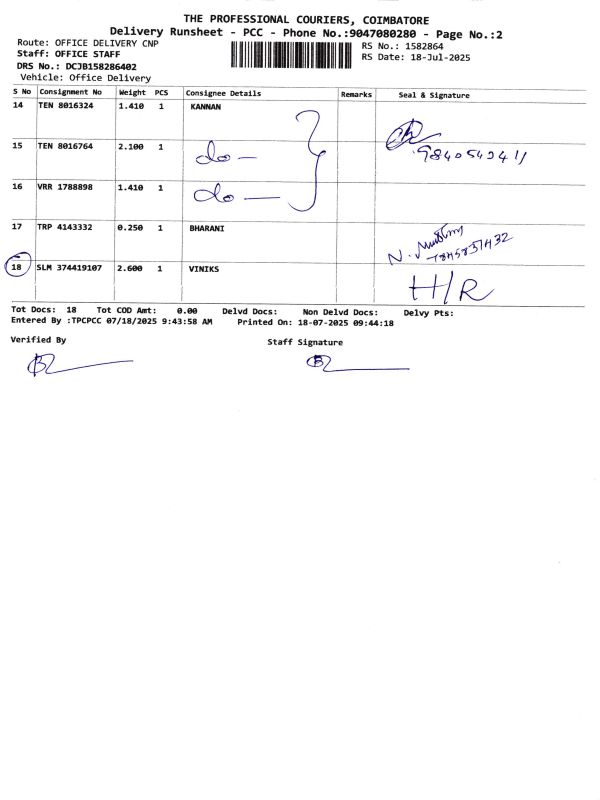 THE PROFESSIONAL COURIERS, COIMBATORE
Delivery Runsheet - PCC - Phone No.:9047080280 - Page No.:2
Route: OFFICE DELIVERY CNP
Staff: OFFICE STAFF
DRS No.: DCJB158286402
Vehicle: Office Delivery
RS No.: 1582864
RS Date: 18-Jul-2025
S No Consignment No Weight PCS Consignee Details Remarks Seal & Signature
14 TEN 8016324 1.410 1 KANNAN
15 TEN 8016764 2.100 1 do -
16 VRR 1788898 1.410 1 do -
17 TRP 4143332 0.250 1 BHARANI
18 SLM 374419107 2.600 1 VINIKS H/R
Tot Docs: 18 Tot COD Amt: 0.00 Delvd Docs: Non Delvd Docs: Delvy Pts:
Entered By :TPCPCC 07/18/2025 9:43:58 AM Printed On: 18-07-2025 09:44:18
Verified By Staff Signature